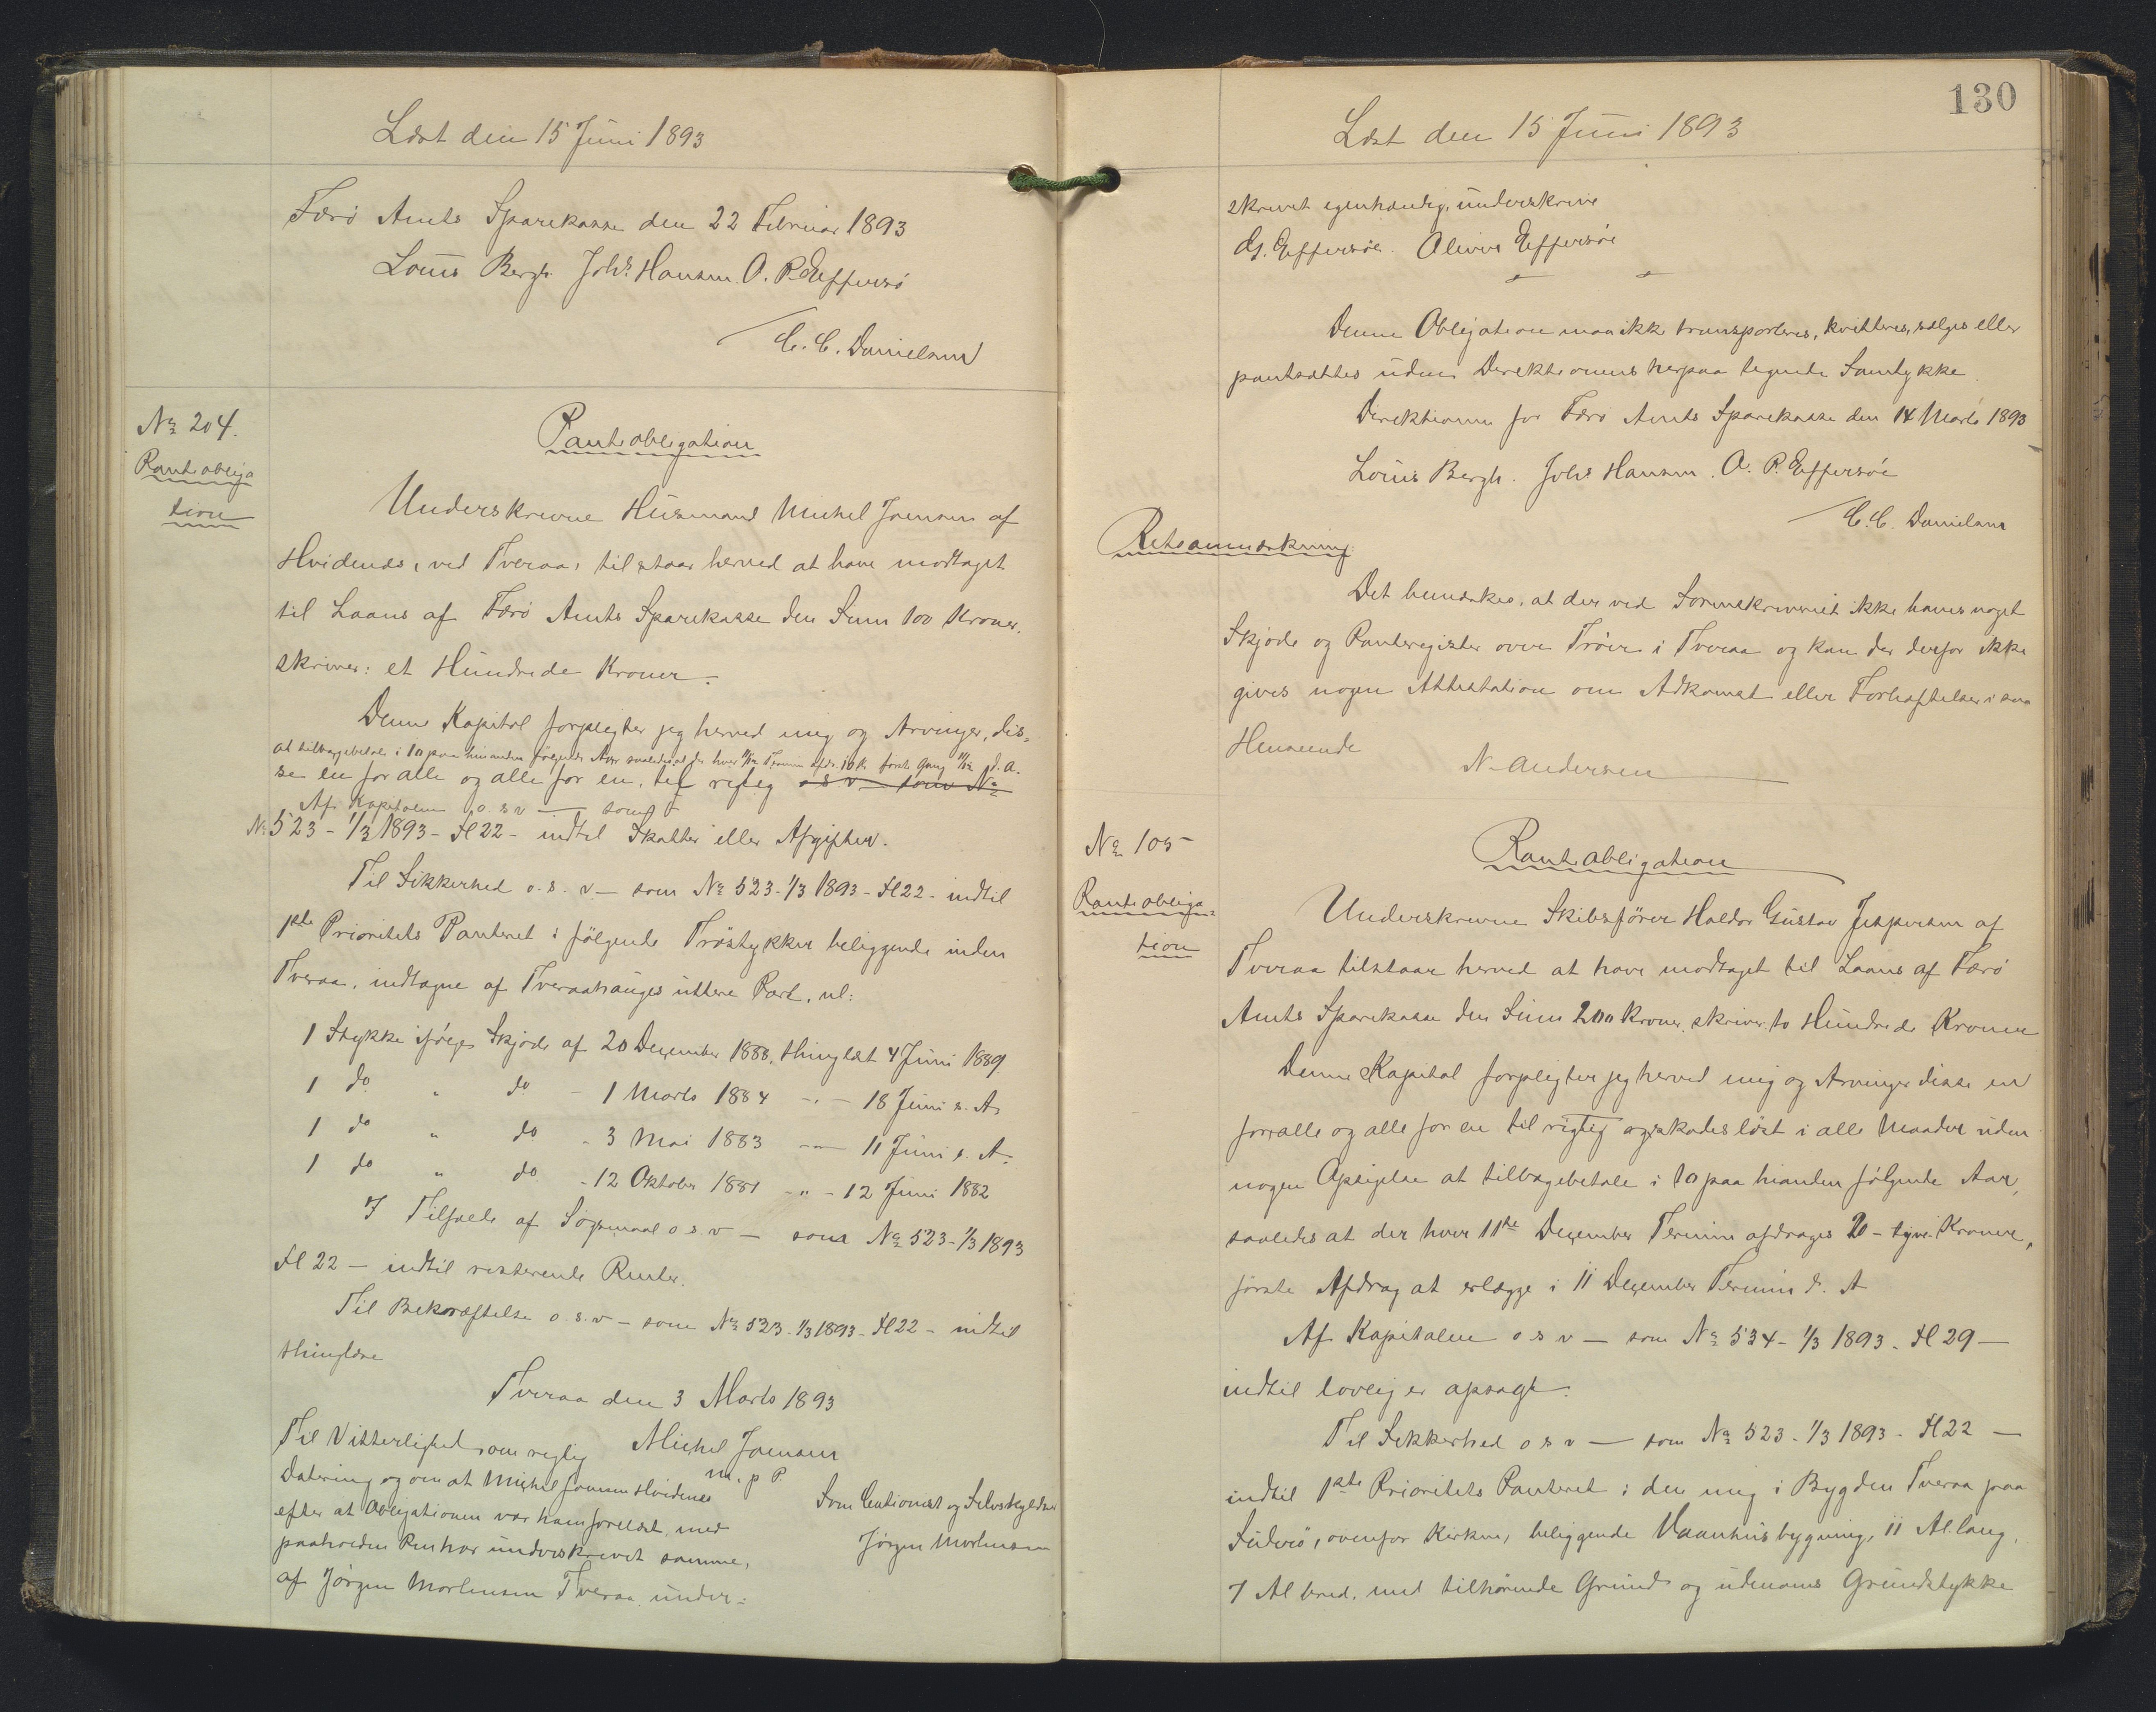 Læst den 15 Juni 1893
Færö Amts Sparekasse den 22 Februar 1893
Louis Bergh. Johs. Hansen. O. P. Effersö
C. C. Danielsen
No 204.
Panteobliga
tion
Panteobligation
Underskrevne Husmand Michel Joensen af
Hvidenæs, ved Tveraa, tilstaar herved at have modtaget
til Laans af Færö Amts Sparekasse den Sum 100 Kroner,
skriver: et Hundrede Kroner.
Denne Kapital forpligter jeg herved mig og Arvinger, dis-
at tilbagebetale i 10 paa hinanden følgende Aar saaledes at der hver 11/12 Termin afdr. 10 Kr. første Gang 11/12 d. A.
se en for alle og alle for en, til rigtig o s v – som No
Af Kapitalen o. s v — som
No 523 - 1/3 1893 - Fl 22 - indtil Skatter eller Afgifter.
Til Sikkerhed o. s. v – som No 523 - 1/3 1893 - Fl 22 - indtil
1ste Prioritets Panteret i følgende Tröstykker beliggende inden
Tveraa, indtagne af Tveraahauges uttere Part, nl:
1 Stykke ifølge Skjøde af 20 Dezember 1888, thinglæst 4 Juni 1889.
1 do " do - 1 Marts 1884 - " - 18 Juni s. A.
1 do " do - 3 Mai 1883 - " - 11 Juni s. A.
1 do " do - 12 Oktober 1881 - " - 12 Juni 1882
I Tilfælde af Søgsmaal o s. v — som No 523 - 1/3 1893
Fl 22 — indtil resterende Renter.
Til Bekræftelse o. s. v – som No 523 - 1/3 1893 - Fl 22 - indtil
thinglæse
Tveraa den 3 Marts 1893
Til Vitterlighed om rigtig Michel Joensen
m. p P.
Datering og om at Michel Joensen Hvidenæs
efter at Obligationen var ham forelæst, med
paaholden Pen har underskrevet samme,
af Jörgen Mortensen Tveraa under-
Som Cautionist og Selvskyldner
Jörgen Mortensen
130
Læst den 15 Juni 1893
skrevet egenhændig, underskrive
G. Effersöe. Oliver Effersöe
Denne Obligation maa ikke transporteres, kvitteres, sælges eller
pantsættes uden Direktionens herpaa tegnede Samtykke
Direktionen for Færö Amts Sparekasse den 14 Marts 1893
Louis Bergh. Johs Hansen. O. P. Effersöe
C. C. Danielsen
Retsanmærkning:
Det bemærkes, at der ved Sorenskriveriet ikke haves noget
Skjøde og Panteregister over Tröer i Tveraa og kan der derfor ikke
gives nogen Attestation om Adkomst eller Forhæftelser i saa
Henseende
N. Andersen
No 105
Panteobliga-
tion
Panteobligation
Underskrevne Skibsförer Haldor Gustav Jespersen af
Tveraa tilstaar herved at have modtaget til Laans af Færö
Amts Sparekasse den Sum 200 Kroner, skriver to Hundrede Kroner
Denne Kapital forpligter jeg herved mig og Arvinger disse en
for alle og alle for en til rigtig og skadesløst i alle Maader uden
nogen Opsigelse at tilbagebetale i 10 paa hianden følgende Aar,
saaledes at der hver 11te Dezember Termin afdrages 20 - tyve Kroner,
første Afdrag at erlægge i 11 Dezember Termin d. A
Af Kapitalen o s v — som No 534 - 1/3 1893 - Fl 29 —
indtil lovlig er opsagt.
Til Sikkerhed o s v — som No 523 - 1/3 1893 - Fl 22 —
indtil 1ste Prioritets Panteret i den mig i Bygden Tveraa paa
Suderö, ovenfor Kirken, beliggende Vaanhusbygning, 11 Al. lang,
7 Al bred, med tilhørende Grund og udenoms Grundstykke